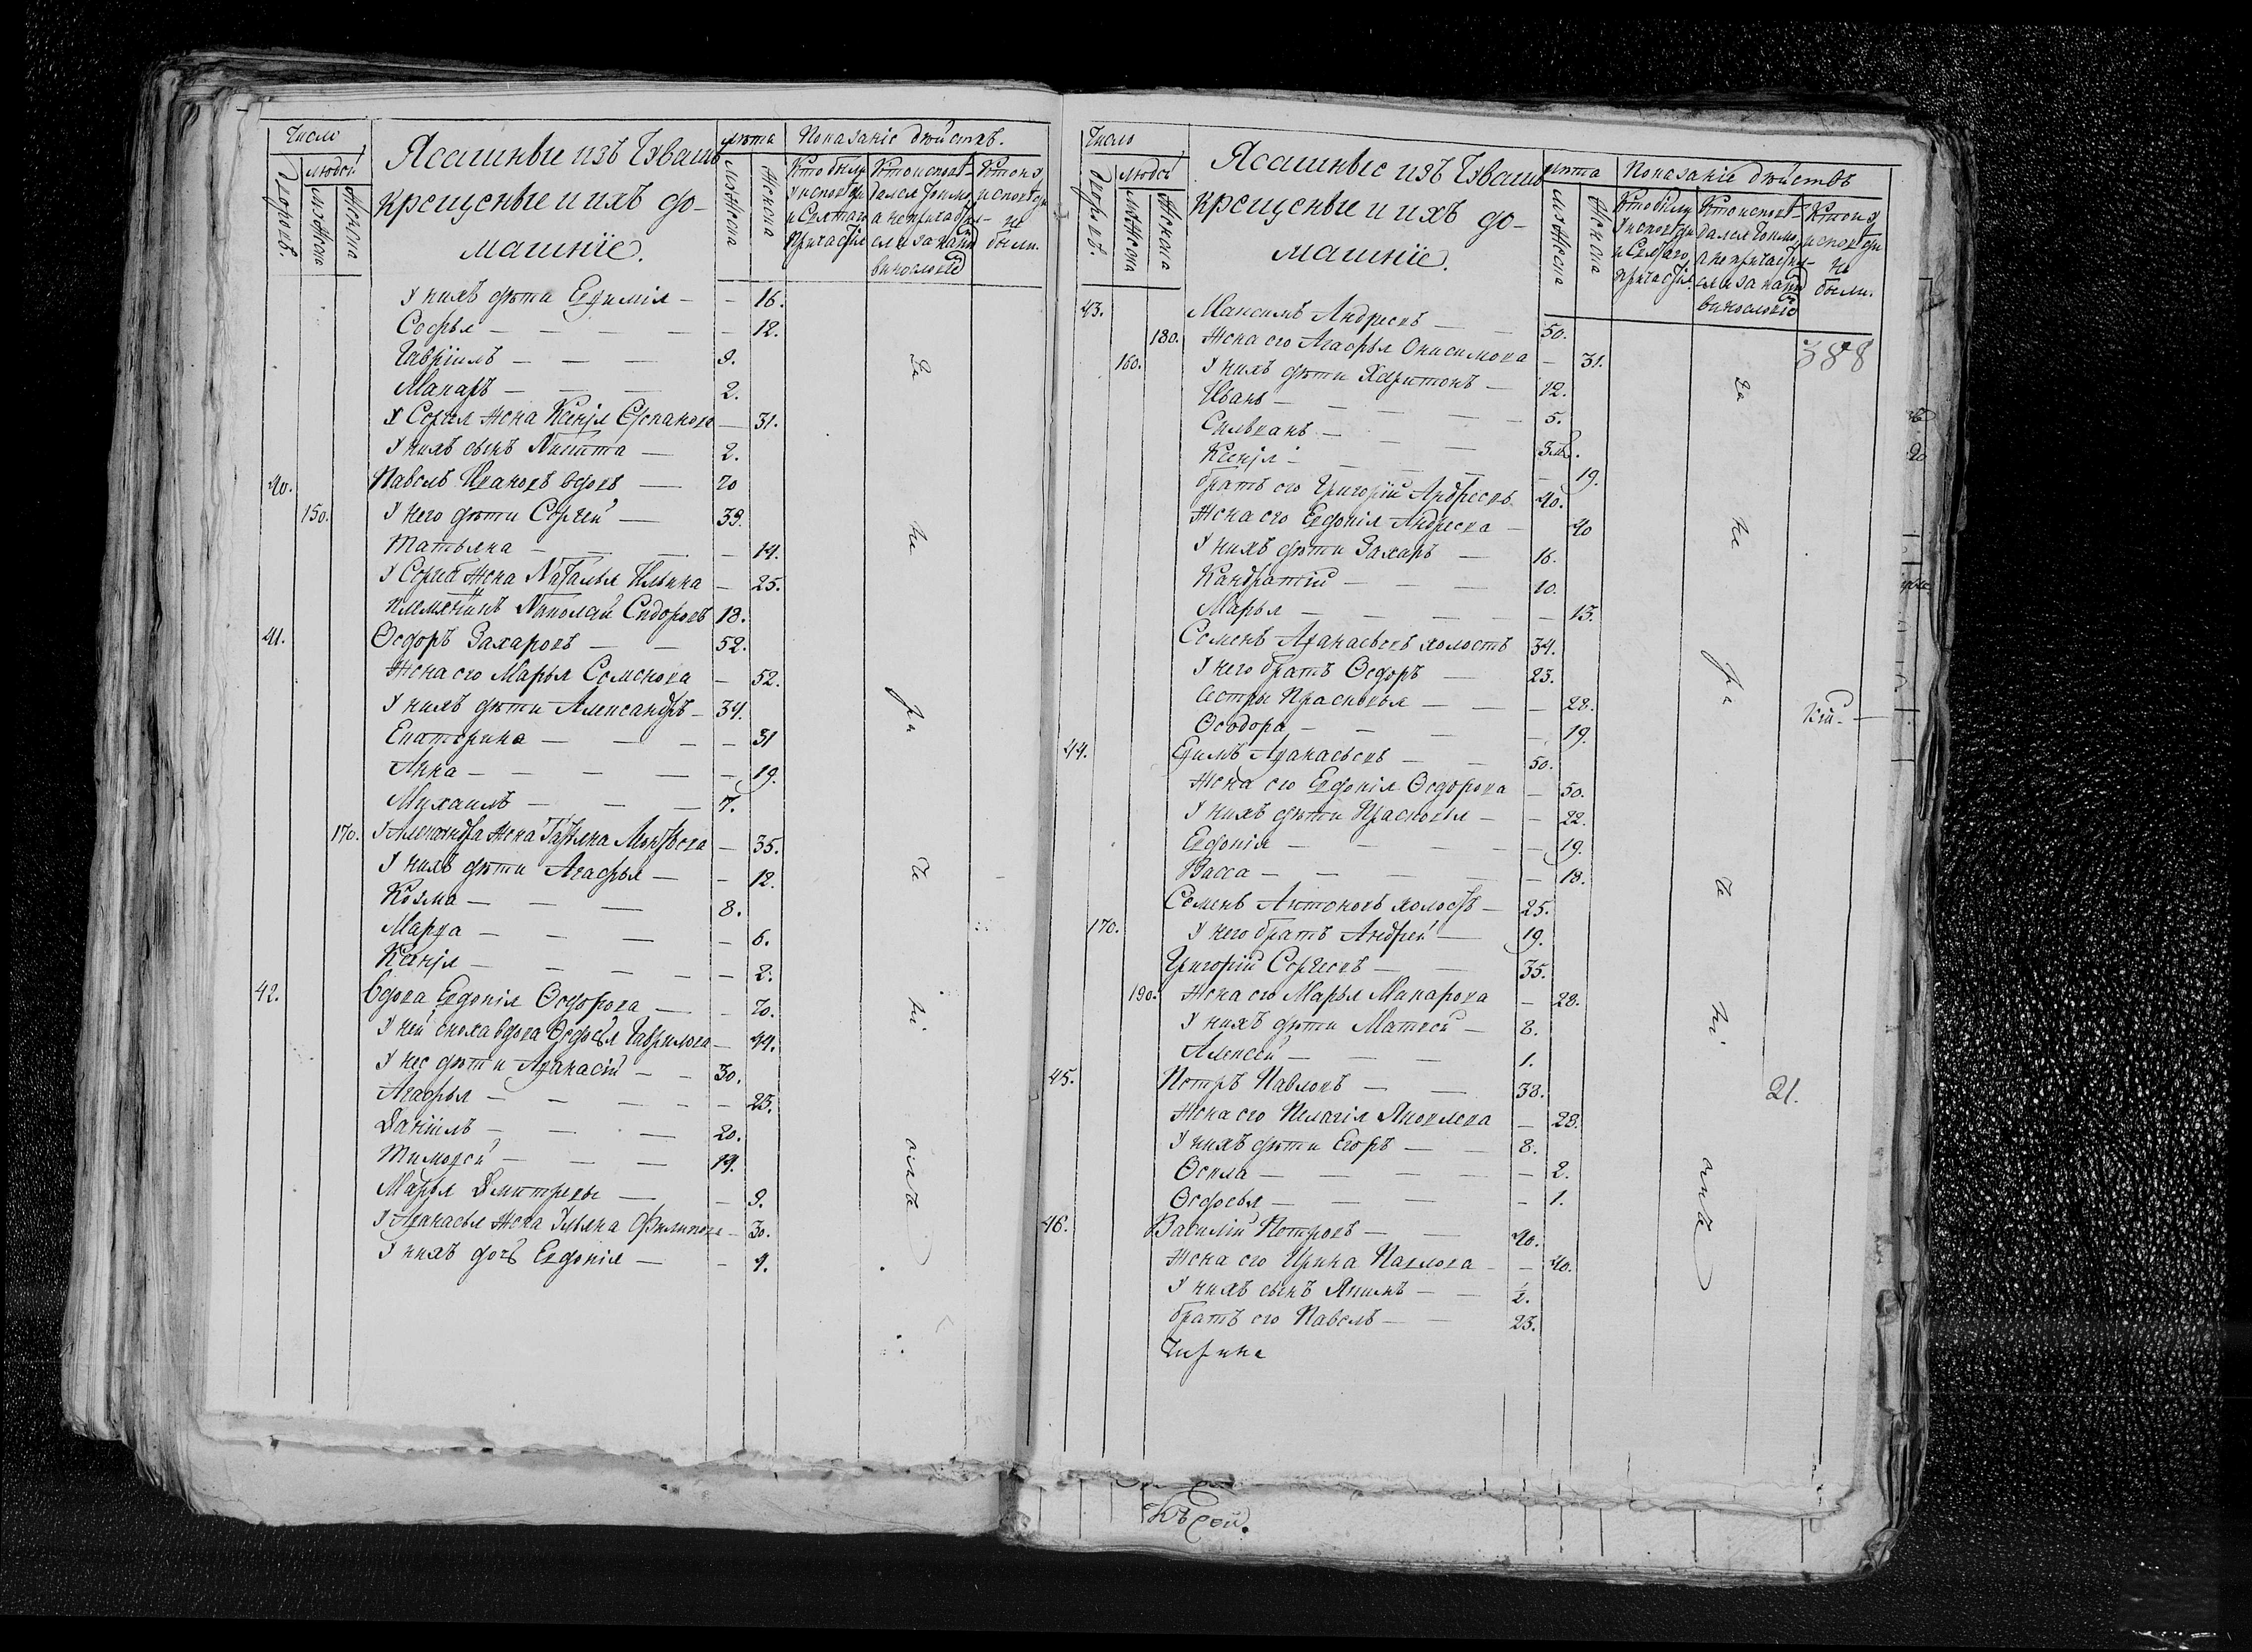 Число
Дворовъ.
людей
мужеска
женска
Ясашные изъ Чуваш
крещеные и ихъ до-
машніе.
лѣта
мужеска
женска
Показаніе дѣйствъ.
Кто были
у исповѣди
и Святаго
Причастія
Кто исповѣ-
дался токмо
а не причасти-
лся и за каки
винословіе
Кто и у
исповѣди
не
были.
У нихъ дѣти Евфимія — — 16.
Софья — — — — 12.
Гавріилъ — — — 9.
Макаръ — — — 2.
У Сергія жена Ксенія Степанова — 31.
У нихъ сынъ Никита — 2.
40. Павелъ Ивановъ вдовъ — 70
150. У него дѣти Сергей — 33.
Татьяна — — — — 14.
У Сергѣя жена Наталья Ильина — 25.
племянникъ Николай Сидоровъ 18.
41. Ѳедоръ Захаровъ — — 52.
Жена его Марья Семенова — 52.
У нихъ дѣти Александръ — 34.
Екатерина — — — — 31
Анна — — — — — 19.
Михаилъ — — — 7.
170. У Александра жена Татьяна Матвѣева — 35.
У нихъ дѣти Агафья — — 12.
Козма — — — 8.
Марѳа — — — — 6.
Ксенія — — — — — 2.
42. Вдова Евдокія Ѳедорова — — 70.
У ней сноха вдова Ѳедосья Гаврилова — 44.
У нее дѣти Аѳанасій — — 30.
Агафья — — — — — 23.
Даніилъ — — — 20.
Тимоѳей — — — 14.
Марья Дмитревы — — 9.
У Аѳанасья жена Ульяна Филипова — 30.
У нихъ дочь Евдокія — — 4.
За
не
ра
че
ні
емъ
Число
Дворовъ.
людей
мужеска
женска
Ясашные изъ Чуваш
крещеные и ихъ до-
машніе.
лѣта
мужеска
женска
Показаніе дѣйствъ
Кто были
у исповѣди
и Святаго
причастія
Кто исповѣ-
дался токмо
а не причасти-
лся и за каки
винословіе
Кто и у
исповѣди
не
были.
388
43. Максимъ Андреевъ — — 50.
180. Жена его Агафья Онисимова — 31.
160. У нихъ дѣти Харитонъ — 12.
Иванъ — — — — 5.
Сильванъ — — — —
Ксенія — — — — — 19.
братъ его Григорій Андреевъ 40.
Жена его Евдокія Андреева — 40
У нихъ дѣти Захаръ — 16.
Кандратій — — — 10.
Марья — — — — — 13.
Семенъ Аѳанасьевъ холостъ 34.
У него братъ Ѳедоръ — 23.
Сестры Прасковья — — — 28.
Ѳеодора — — — — 19.
44. Ефимъ Аѳанасьевъ — — 50.
Жена его Евдокія Ѳедорова — 50.
У нихъ дѣти Прасковья — — 22.
Евдокія — — — — — 19.
Васса — — — — — 18.
Семенъ Антоновъ холостъ — 25.
170. У него братъ Андрей — 19.
Григорій Сергеевъ — — 35.
190. Жена его Марья Макарова — 28.
У нихъ дѣти Матвей — 8.
Алексей — — — 1.
45. Петръ Павловъ — — 38.
Жена его Пелагія Яковлева — 28.
У нихъ дѣти Егоръ — — 8.
Ѳекла — — — — — 2.
Ѳедосья — — — — 1.
46. Василій Петровъ — — 40.
Жена его Ирина Павлова — — 40.
У нихъ сынъ Якимъ — — 1/2.
братъ его Павелъ — — 23.
За
не
ра
че
ні
емъ
кій. —
21.
Къ сей.